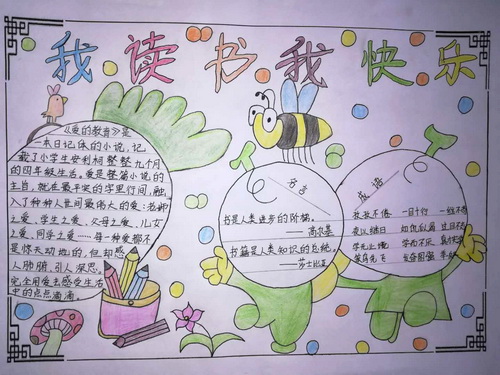 我读书我快乐
《爱的教育》是
一本日记体的小说,记
载了小学生安利柯整整九个月
的四年级生活。爱是整篇小说的
主旨,就在最平实的字里行间,融
入了种种人世间最伟大的爱:老师
之爱、学生之爱、父母之爱、儿女
之爱、同学之爱……每一种爱都不
是惊天动地的,但却感
人肺腑、引人深思。
完全用爱去感受生活
中的点点滴滴。
名言
书是人类进步的阶梯。
——高尔基
书籍是人类知识的总统。
——莎士比亚
成语
孜孜不倦 一目十行
夜以继日 如饥似渴 过目不
学无止境 学而不厌
笨鸟先飞 发奋图强